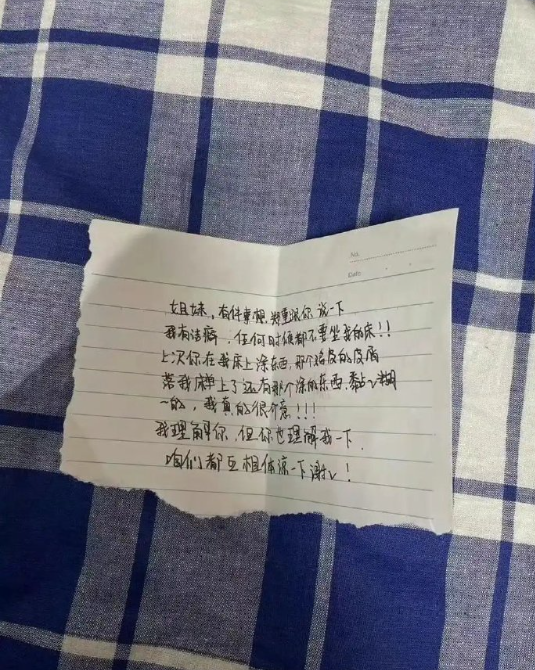 No.
Date
姐妹,有件事想郑重跟你说一下
我有洁癖,任何时候都不要坐我的床!!
上次你在我床上涂东西,那个鸡皮的皮屑
蹭我床单上了还有那个涂的东西,黏黏糊
一的,我真的很介意!!!
我理解你,但你也理解我一下,
咱们都互相体谅一下谢谢!